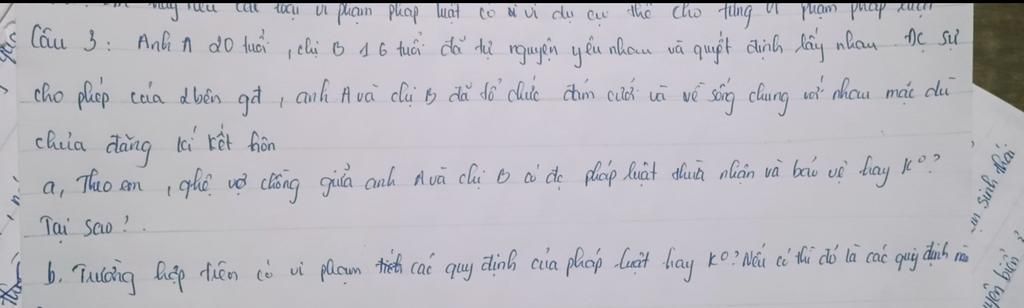 hãy nêu các loại vi phạm pháp luật có ví dụ cụ thể cho từng vi phạm pháp luật
Câu 3: Anh A 20 tuổi, chị B 16 tuổi đã tự nguyện yêu nhau và quyết định lấy nhau. Đc sự
cho phép của 2 bên gđ, anh A và chị B đã tổ chức đám cưới và về sống chung với nhau mặc dù
chưa đăng kí kết hôn
a, Theo em, qhệ vợ chồng giữa anh A và chị B có đc pháp luật thừa nhận và bảo vệ hay ko?
Tại sao?.
b. Trường hợp trên có vi phạm các quy định của pháp luật hay ko? Nếu có thì đó là các quy định nào
sinh thái